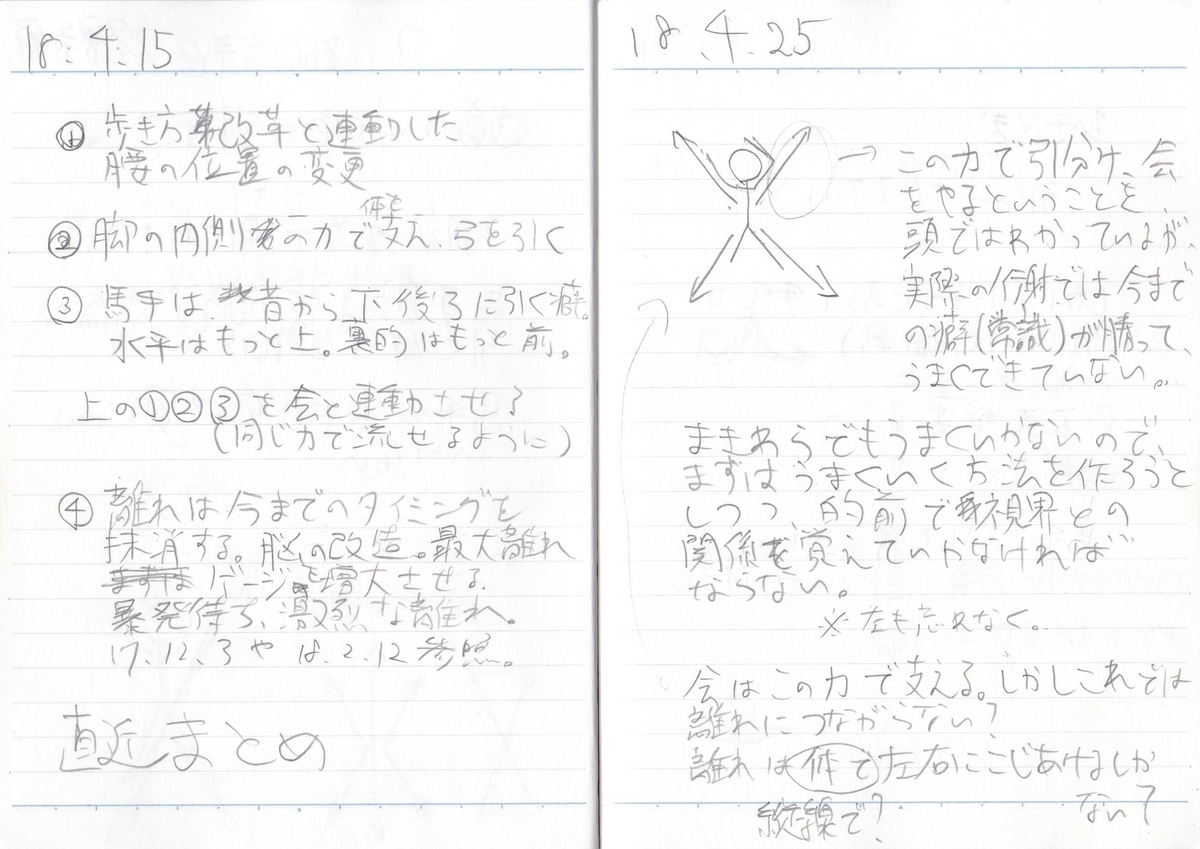 18.4.15
① 歩き方改革と連動した
腰の位置の変更
② 脚の内側の力で体を支え、弓を引く
③ 馬手は、昔から下後ろに引く癖。
水平はもっと上。裏的はもっと前。
上の①②③を会と連動させ?
(同じ力で流せるように)
④ 離れは今までのタイミングを
抹消する。脳の改造。最大離れ
ゲージを増大させる
暴発待ち、激烈な離れ。
17.12.3や18.2.12参照。
直近まとめ
18.4.25
→ この力で引分け、会
をやるということを、
頭ではわかっているが、
実際の行射では今まで
の癖(常識)が勝って、
うまくできていない。
まきわらでもうまくいかないので、
まずはうまくいく方法を作ろうと
しつつ、的前で視界との
関係を覚えていかなければ
ならない。
※左も忘れなく。
会はこの力で支える。しかしこれでは
離れにつながらない?
離れは体で左右にこじあけるしか
ない?
縦線で?